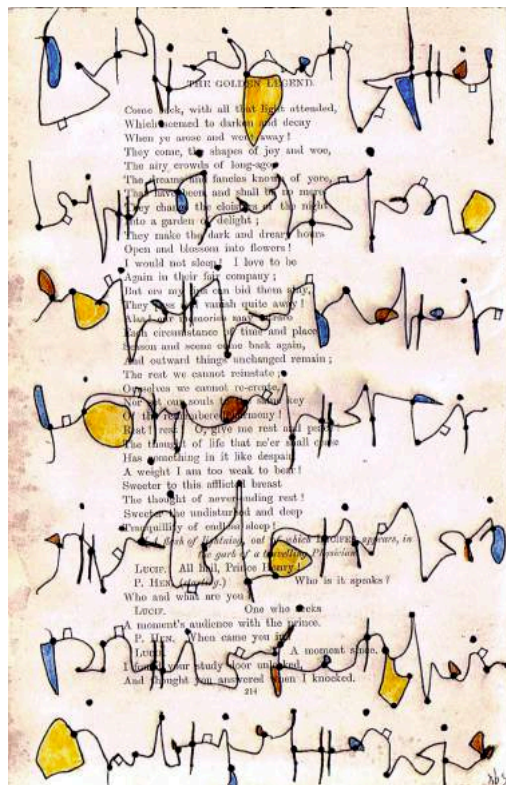 THE GOLDEN LEGEND.
Come back, with all that light attended,
Which seemed to darken and decay
When ye arose and went away!
They come, the shapes of joy and woe,
The airy crowds of long-ago,
The dreams and fancies known of yore,
That have been and shall be no more.
They change the cloisters of the night
Into a garden of delight;
They make the dark and dreary hours
Open and blossom into flowers!
I would not sleep! I love to be
Again in their fair company;
But ere my lips can bid them stay,
They pass and vanish quite away!
Alas! our memories may retrace
Each circumstance of time and place,
Season and scene come back again,
And outward things unchanged remain;
The rest we cannot reinstate;
Ourselves we cannot re-create,
Nor set our souls to the same key
Of the remembered harmony!
Rest! rest! O, give me rest and peace!
The thought of life that ne'er shall cease
Has something in it like despair,
A weight I am too weak to bear!
Sweeter to this afflicted breast
The thought of never-ending rest!
Sweeter the undisturbed and deep
Tranquillity of endless sleep!
flash of lightning, out of which LUCIFER appears, in
the garb of a travelling Physician.
LUCIF. All hail, Prince Henry!
P. HEN. (starting.) Who is it speaks?
Who and what are you
LUCIF. One who seeks
A moment's audience with the prince.
P. HEN. When came you in?
LUCIF. A moment since.
I found your study door unlocked,
And thought you answered when I knocked.
214